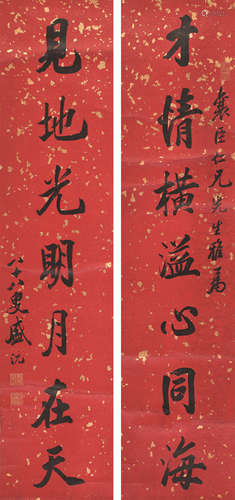 才情横溢心同海
裴臣仁兄先生雅属
見地光明月在天
八十八叟盛沅